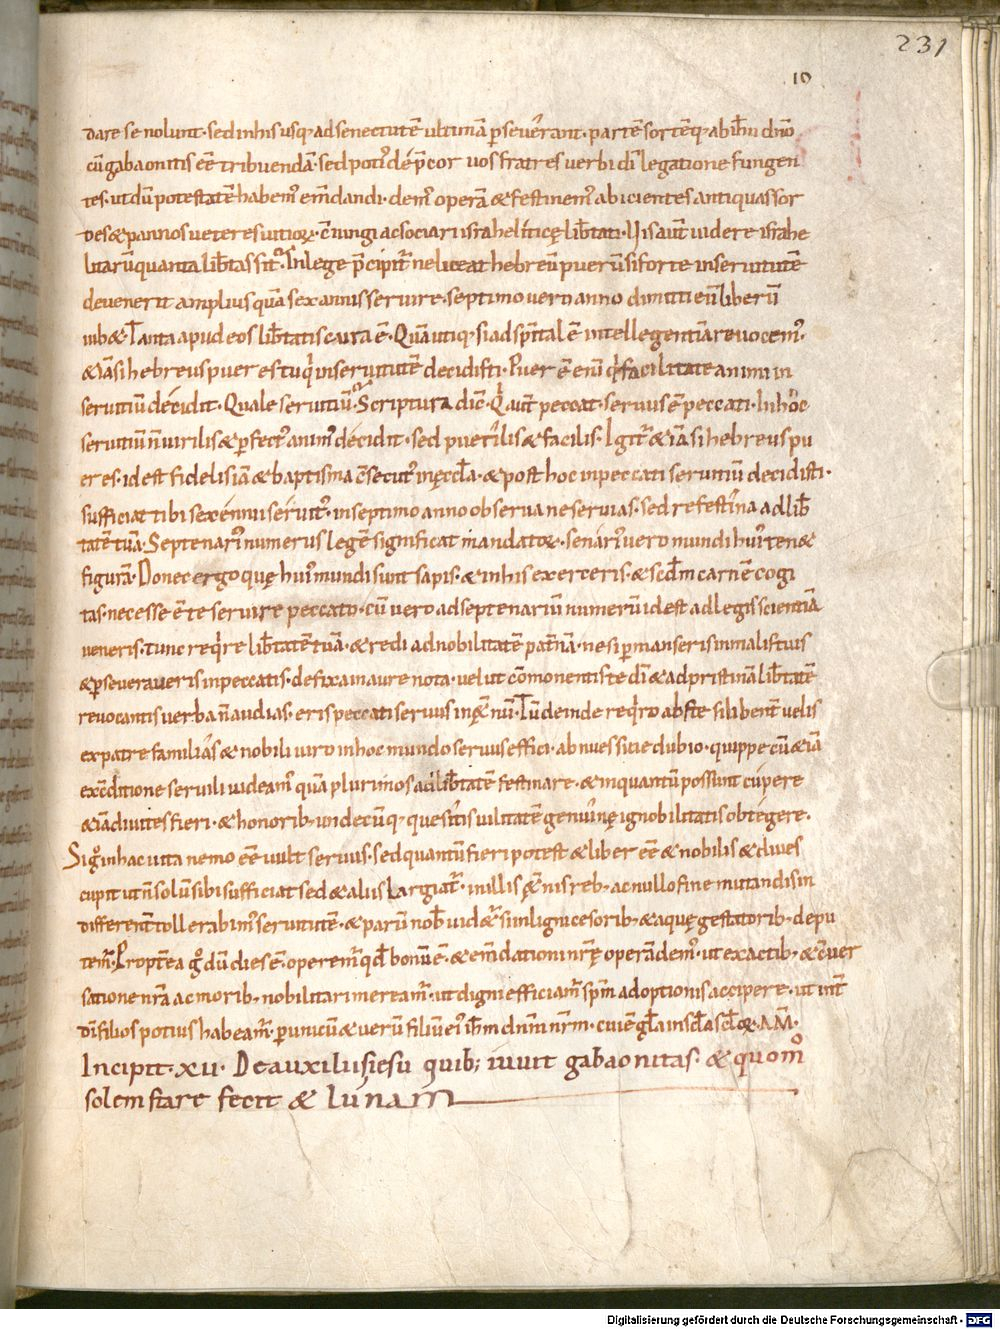 231
10
dare se nolunt· sed in his usq; ad senectutē ultimā ꝑseuerant· partē sortēq; ab ih̄u dn̄o
cū gabaonitis eē tribuendā· sed potiꝰ dep̄cor uos fratres uerbi dī legatione fungen
tes· ut dū potestatē habemꝰ em̄dandi· demꝰ operā & festinemꝰ abicientes antiquas sor
des & pannos ueteres uitioꝝ· c̄iungi ac sociari israheliticę lib̄tati· Uis aut̄ uidere israhe
litarū quanta lib̄tas sit? In lege p̄cipit̄ ne liceat hebreū puerū si forte in seruitutē
deuenerit amplius quā sex annis seruire· septimo uero anno dimitti eū liberū
iub&· Tanta apud eos lib̄tatis cura ē· Quā utiq; si ad sp̄ital ē intellegentiā reuocemꝰ·
& iā si hebreus puer es tu qͥ in seruitutē decidisti· Puer ē eni qͥ facilitate animi in
seruitiū decidit· Quale seruitiū? Scriptura dic̄· Qͥ aut̄ peccat· seruus ē peccati· In hoc
seruitiū n̄ uirilis & ꝑfectꝰ animꝰ decidit· sed puerilis & facilis· Igit̄ & iā si hebreus pu
er es· id est fidelis iā & baptisma c̄secutꝰ in ęccl̄a· & post hoc in peccati seruitiū decidisti·
sufficiat tibi sexennii seruitꝰ· in septimo anno obserua ne seruias· sed refestina ad lib̄
tatē tuā· Septenariꝰ numerus legē significat mandatoꝝ· senariꝰ uero mundi huiꝰ ten&
figurā· Donec ergo quę huiꝰ mundi sunt sapis· & in his exerceris· & scd̄m carnē cogi
tas· necesse ē te seruire peccato· cū uero ad septenariū numerū id est ad legis scientiā
ueneris· tunc reqͥre lib̄tatē tuā· & redi ad nobilitatē pat̄nā· ne si ꝑmanseris in malis tuis
& ꝑseueraueris in peccatis· defixa in aure nota· uelut cōmonentis te dī & ad pristinā lib̄tatē
reuocantis uerba n̄ audias· eris peccati seruus in ęt̄nū· Tū deinde reqͥro abs te si libent̄ uelis
ex patre familias & nobili uiro in hoc mundo seruus effici· abnues sine dubio· quippe cū & iā
ex c̄ditione seruili uideamꝰ quā plurimos ad lib̄tatē festinare· & in quantū possunt cupere
& iā diuites fieri· & honorib; undecūq; quesitis uilitatē genuinę ignobilitatis obtegere·
Si g̊ in hac uita nemo eē uult seruus· sed quantū fieri potest & liber eē & nobilis & diues
cupit ut n̄ solū sibi sufficiat sed & aliis largiat̄· in illis ęt̄nis reb; ac nullo fine mutandis in
different̄ tollerabimꝰ seruitutē· & parū nob̄ uid&̄ si in lignicesorib; & aquę gestatorib; depu
temꝰ· Propt̄ea g̊ dū dies ē· operem̄ qd̄ bonū ē· & em̄dationi nr̄ę operā demꝰ· ut ex actib; & c̄uer
satione nr̄a ac morib; nobilitari mereām̄· ut digni efficiam̄ sp̄m adoptionis accipere· ut int̄
dī filios potius habeam̄· ꝑ unicū & uerū filiū eiꝰ ih̄m dn̄m nr̄m· cui ē gl̄a in scl̄a scl̄oꝝ· AM̄·
Incipit· xii· De auxiliis iesu quib; iuuit gabaonitas· & quom̊
solem stare fecit & lunam
Digitalisierung gefördert durch die Deutsche Forschungsgemeinschaft - DFG